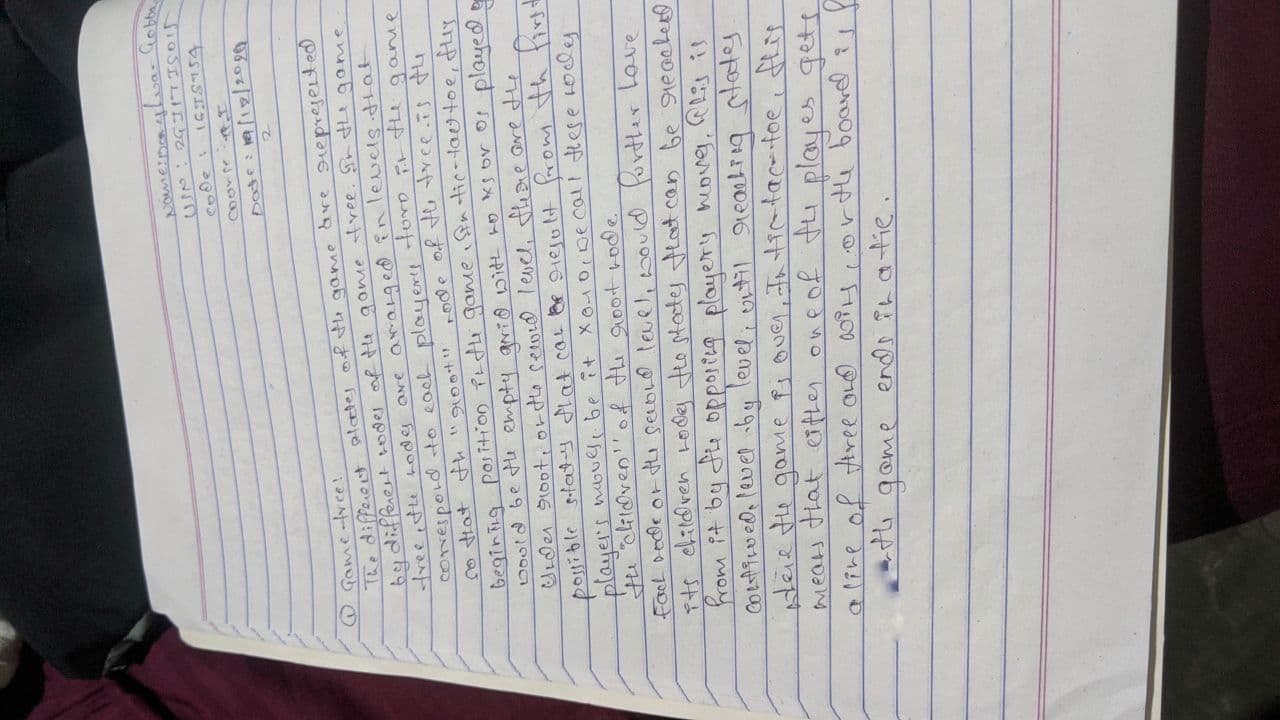 Name: Danayluva Gobbu
USN: 2GI17IS015
code: 16IS754
Course: AI
Date: 19/12/2020
2
① Game-tree:
The different states of the game are represented
by different nodes of the game tree. In the game
tree, the nodes are arranged in levels that
correspond to each player's turn in the game
so that the "root" node of the tree is the
begining position in the game. In tic-tac-toe, this
would be the empty grid with no xs or os played
Under root, on the second level, there are the
possible states that can be result from the first
player's moves, be it x or o, we call these nodes
the "children" of the root node.
Each node on the second level, would further have
its children nodes the states that can be reached
from it by the opposing player's moves. This is
continued, level by level, until reaching states
where the game is over, In tic-tac-toe, this
means that either one of the players gets
a line of three and wins, or the board is
the game ends in a tie.